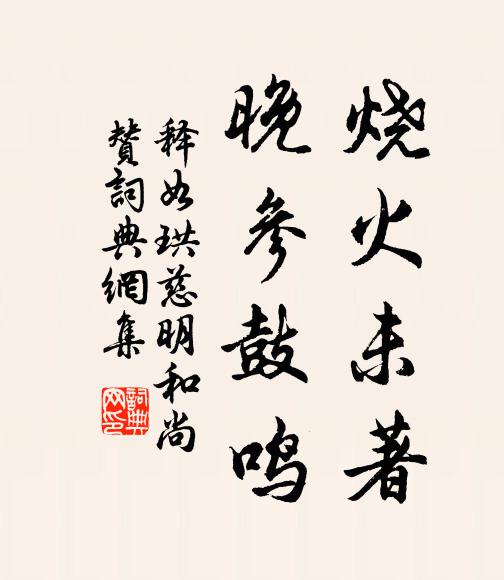 烧火未著
晚参鼓鸣
释如珙慈明和尚
赞詞典網集
詞典网印